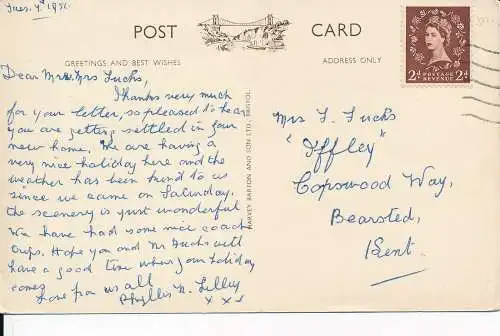 POST CARD
GREETINGS AND BEST WISHES
ADDRESS ONLY
Dear Mr & Mrs Fuchs,
Thanks very much
for your letter, so pleased to hear
you are getting settled in your
new home. We are having a
very nice holiday here and the
weather has been kind to us
since we came on Saturday.
the scenery is just wonderful
We have had some nice coach
trips. Hope you and Mr Fuchs will
have a good time when your holiday
comes
Love from us all
Phyllis N. Lilley
x x x
HARVEY BARTON AND SON LTD., BRISTOL
POSTAGE
REVENUE
2d 2d
Mrs F. Fuchs
"Iffley"
Copswood Way,
Bearsted,
Kent.